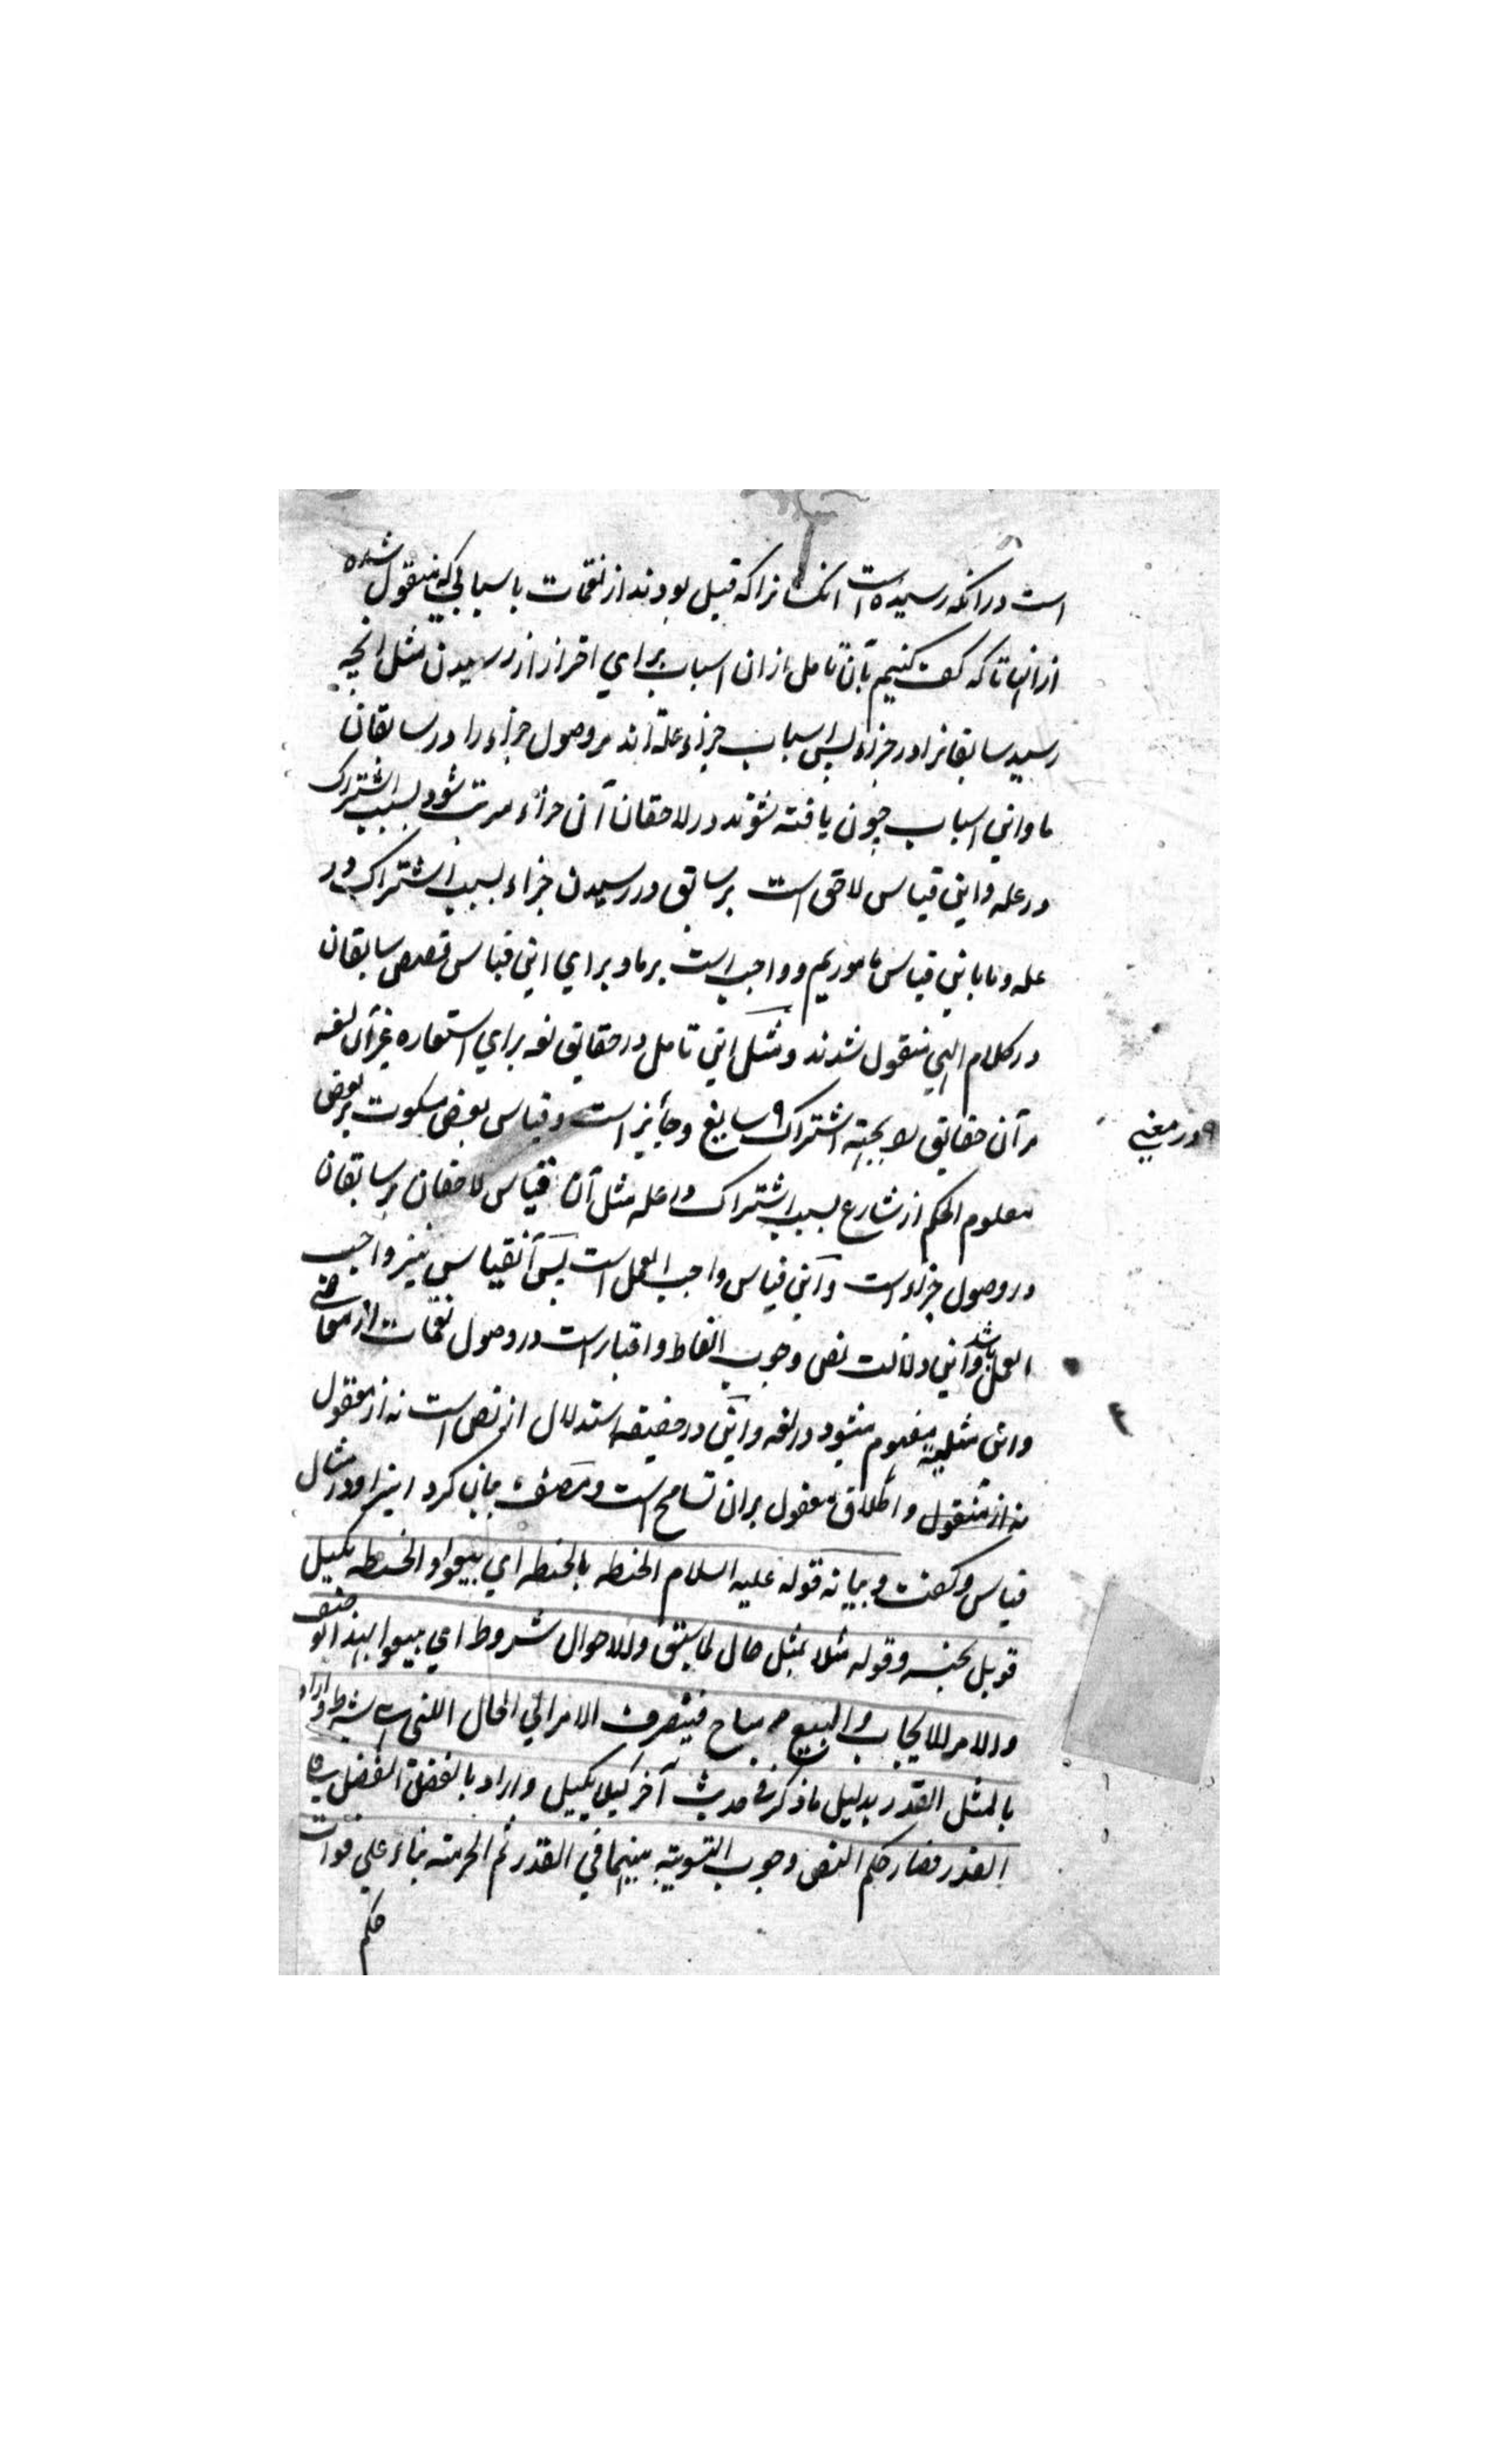 است درانکه رسیده است انکسانرا که قبل بودند از نقمات باسبابی که منقول شده
ازانها تا که کف کنیم بآن تامل ازان اسباب برای احتراز از رسیدن مثل انچه
رسید سابقانرا در جزاء پس اسباب جزاء علة اند مر وصول جزاء را در سابقان
ما واین اسباب چون یافته شوند در لاحقان آن جزاء مرتب شود بسبب اشتراک
در عله واین قیاس لاحق است بر سابق در رسیدن جزاء بسبب اشتراک در
عله وما باین قیاس ماموریم وواجب است برما وبرای این قیاس قصص سابقان
در کلام الهی منقول شدند ومثل این تامل در حقایق لغه برای استعاره غیر آن لغه
مر آن حقایق را بجهته اشتراک سایغ وجایز است وقیاس بعض سکوت بر بعض
در معنی
معلوم الحکم از شارع بسبب اشتراک در عله مثل آن قیاس لاحقان بر سابقان
در وصول جزاء است واین قیاس واجب العمل است پس آنقیاس نیز واجب
العمل باشد واین دلالت نص وجوب اتعاظ واعتبار است در وصول نقمات از معاصی
واین مثلیه مفهوم میشود در لغه واین در حقیقه استدلال از نص است نه از معقول
نه از منقول واطلاق معقول بران تسامح است ومصنف بیان کرد اینرا در مثال
قیاس وگفت وبیانه قوله علیه السلام الحنطه بالحنطه ای بیعوا والحنطه مکیل
قوبل بجنسه وقوله مثلا بمثل حال لما سبق والاحوال شروط ای بیعوا بهذا الوصف
والامر للایجاب والبیع مباح فینصرف الامر الی الحال التی هی شرط واراد
بالمثل القدر بدلیل ما ذکر فی حدیث آخر کیلا بکیل واراد بالفضل الفضل علی
القدر فصار حکم النص وجوب التسویة بینهما فی القدر ثم الحرمته بناء علی فوات
حکم